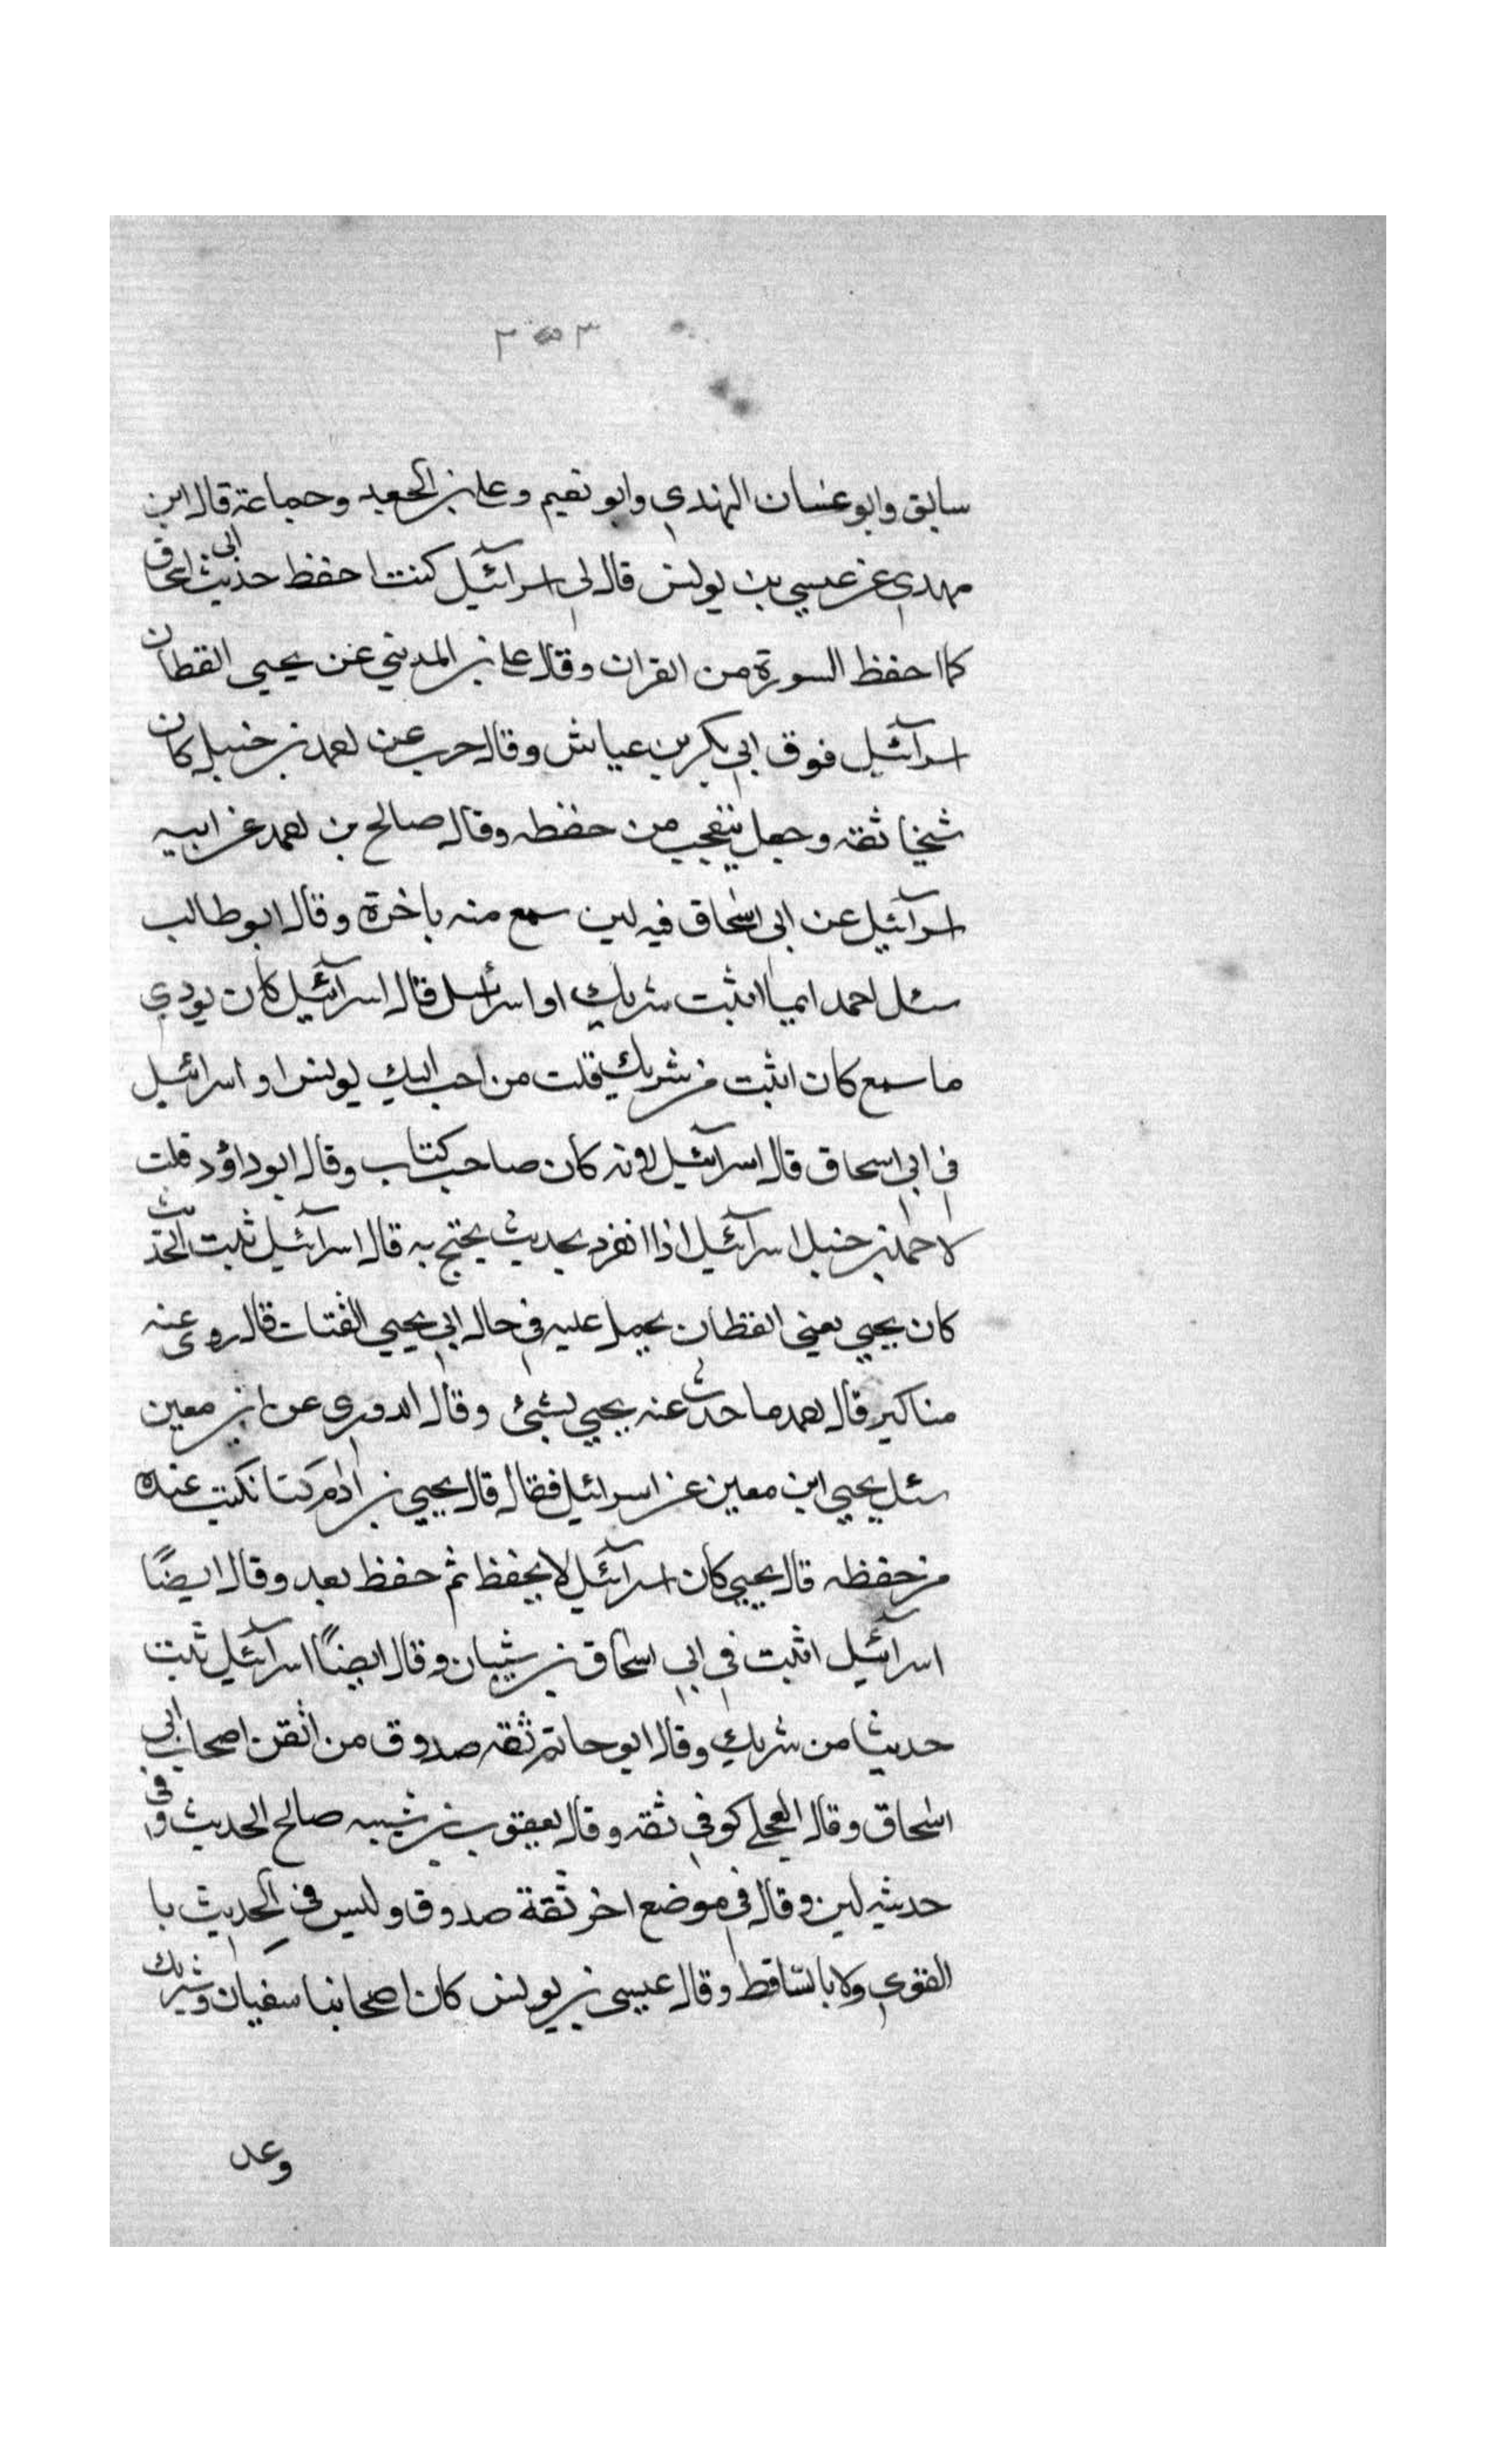 ٣٥٣
سابق وابو غسان النهدي وابو نعيم وعلي بن الجعد وجماعة قال ابن
مهدي عن عيسي بن يونس قال لي اسرآئيل كنت احفظ حديث ابي اسحاق
كما احفظ السورة من القران وقال علي بن المديني عن يحيى القطان
اسرآئيل فوق ابي بكر بن عياش وقال حرب عن احمد بن حنبل كان
شيخا ثقه وجعل يتعجب من حفظه وقال صالح بن احمد عن ابيه
اسرآئيل عن ابي اسحاق فيه لين سمع منه باخرة وقال ابو طالب
سئل احمد ايما اثبت شريك او اسرائيل قال اسرآئيل كان يودي
ما سمع كان اثبت من شريك قلت من احب اليك يونس او اسرائيل
في ابي اسحاق قال اسرآئيل لانه كان صاحب كتاب وقال ابو داؤد قلت
لاحمد بن حنبل اسرآئيل اذا انفرد بحديث يحتج به قال اسرآئيل ثبت الحديث
كان يحيي يعني القطان يحمل عليه في حال ابي يحيي القتات قال روى عنه
مناكير قال احمد ما حدث عنه يحيي بشئ وقال الدوري عن ابن معين
سئل يحيي ابن معين عن اسرائيل فقال قال يحيي بن ادم كنا نكتب عنده
من حفظه قال يحيي كان اسرآئيل لا يحفظ ثم حفظ بعد وقال ايضًا
اسرآئيل اثبت في ابي اسحاق من شيبان وقال ايضًا اسرآئيل ثبت
حديثا من شريك وقال ابو حاتم ثقه صدوق من اتقن اصحاب ابي
اسحاق وقال العجلي كوفي ثقه وقال يعقوب بن شيبه صالح الحديث وفي
حديثه لين وقال في موضع اخر ثقة صدوق وليس في الحديث با
القوي ولا بالساقط وقال عيسى بن يونس كان اصحابنا سفيان وشريك
وعد